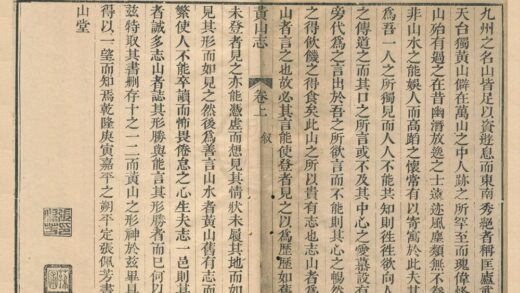 九州之名山皆足以資遊息而東南秀絕者稱匡廬
天台獨黃山僻在萬山之中人跡之所罕至而瑰偉
山殆有過之在昔幽潛放逸之士遠迹風塵類無不
非山水之能娛人而高蹈之懷常有以寄寓於此夫
為吾一人之所獨見而人人不能共知則徃徃欲向人
之傳道之而其口之所言或不及其中心之愛慕設有
旁代為之言出於吾之所欲言而不能則其心之暢然
之得飲饑之得食矣此山之所以貴有志也志山者為
山者言之也故必其言能使登者見之以為歷歷如
黃山志 卷上 叙
未登者見之亦能憑虛而想見其情狀未履其地而如
見其形而如見之然後為善言山水者黃山舊有志而
繁使人不能卒讀而怖畏倦怠之心生夫志一邑則其
者誠多志山者誌其形勝與能言其形勝者而已何以
茲特取其書刪存十之一二而黃山之形神於茲畢具
得以一望而知焉乾隆庚寅嘉平之朔平定張佩芳書
山堂